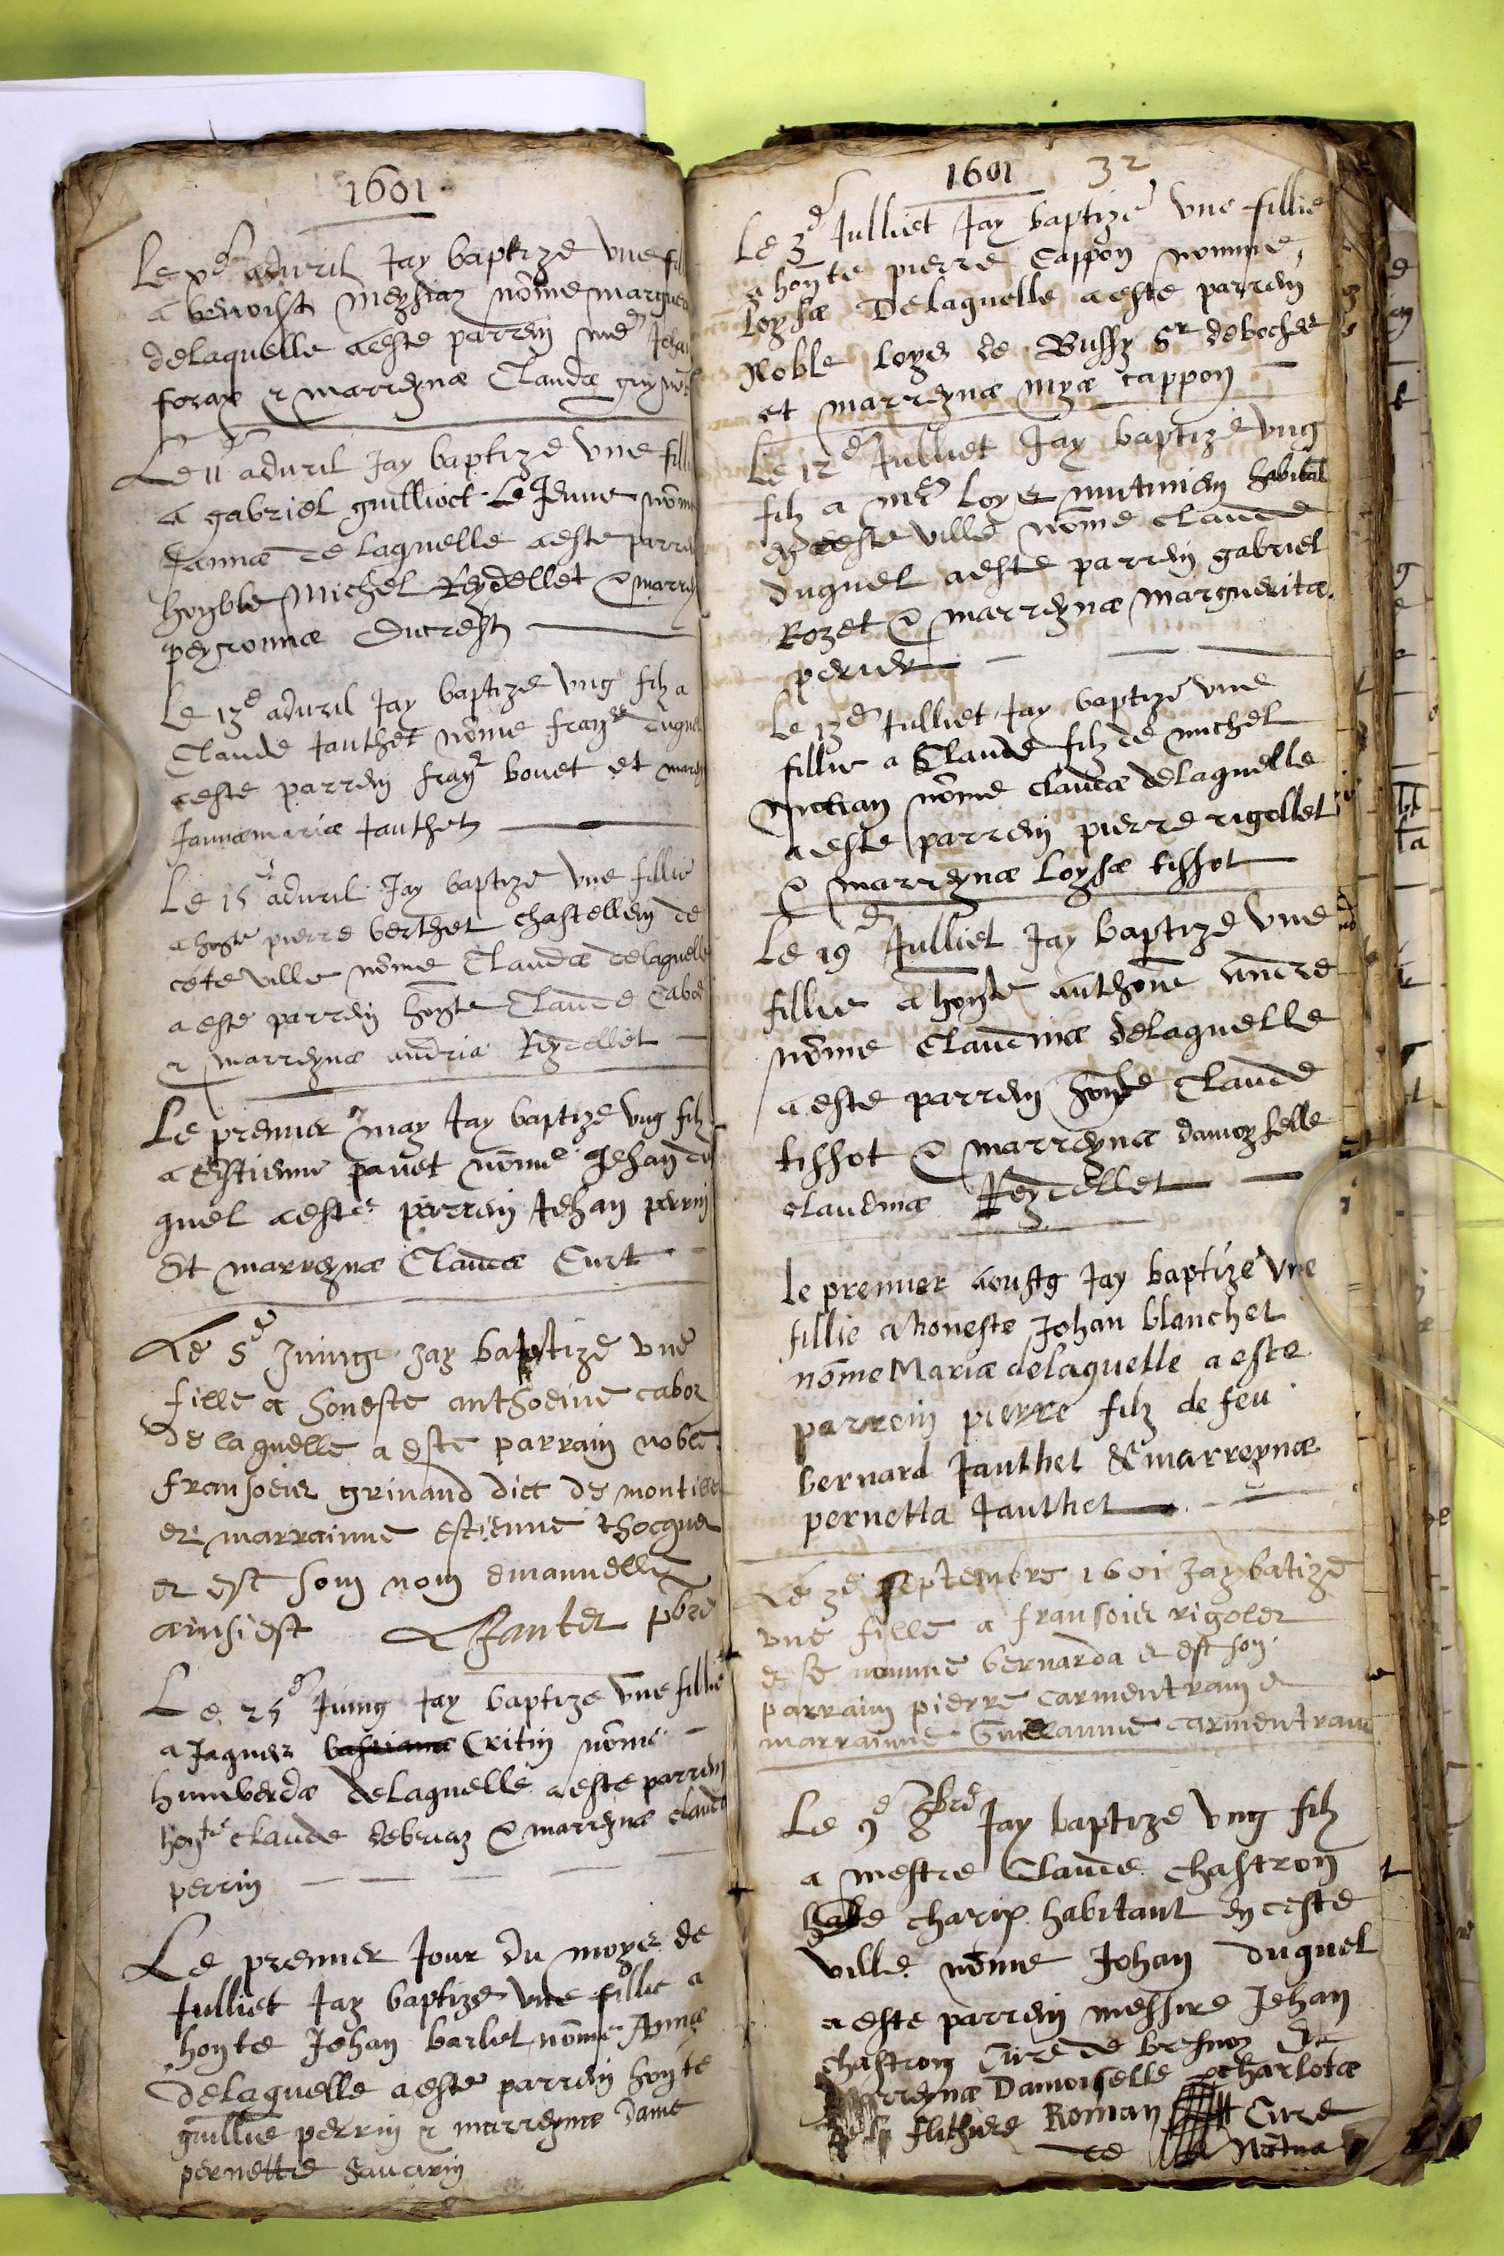 1601
Le advril Jay baptize une fill
a benoist nōme margue
delaquelle a este parrein Jehan
forax & marreynæ Claudæ
Le 11 advril Jay baptize une fill
a gabriel guillioct Le Jeune nōm
Jannæ de laquelle a este parre
honble Michel Reydellet & marrey
peyronnæ Ducrest
Le 13e advril Jay baptize ung filz a
Claude Jauthet nōme duquel
a este parrein bouet et marey
Jannæmariæ Jauthet
Le 15 advril Jay baptize une fillie
a honte pierre berthet chastellein de
cete ville nōme Claudæ delaquelle
a este parrein honte Claude Cabot
& marreynæ andria Reydellet
Le premier may Jay baptize ung filz
a Estienne pauet nōme Jehan du
quel a este parrein Jehan perrin
Et marreynæ Claudæ Curt
Le 5e Juing Jay baptize une
fille a honeste anthoeine cabot
de laquelle a este parrain noble
fransoeis grinand dict de montille
et marrainne estienne
et est son nom emanuelle
ainsi est Jautet pbre
Le 25e Juing Jay baptize une fillie
a Jaques Critin nōme
humberdæ delaquelle a este parrein
honte Claude debriaz & marreynæ claudæ
perrin
Le premier Jour du moys de
Julliet Jay baptize une fillie a
honte Jehan barlet nōme Annæ
delaquelle a este parrein honte
guillme perrin & marreynæ Dame
pernette
1601 32
Le 3e Julliet Jay baptize une fillie
a honte pierre Cappon nomme
Loysæ Delaquelle a este parrein
Noble Loys de Bussy Sr
et marreynæ myæ cappon
Le 12e Julliet Jay baptize ung
filz a me Loys habitāt
en ceste ville nōme claude
duquel a este parrein gabriel
Rozet & marreynæ Margueritæ
perier
Le 13e Julliet Jay baptize une
fillie a Claude filz de michel
nōme claudæ delaquelle
a este parrein pierre rigollet
& marreynæ Loysæ tissot
Le 19e Julliet Jay baptize une
fillie a honte anthoine andre
nōme Claudinæ delaquelle
a este parrein honte Claude
tissot & marreynæ damoyselle
claudinæ Reydellet
le premier aoustg Jay baptize une
fillie a honeste Johan blanchet
nōme Mariæ delaquelle a este
parrein pierre filz de feu
bernard Jauthet & marreynæ
pernetta Jauthet
Le 3e septembre 1601 Jay batize
une fille a fransois rigolet
et se nomme bernarda et est son
parrain pierre carmentran et
marrainne Guillaume carmentran
Le 9e 8bre Jay baptize ung filz
a mestre Claude chastron
charix habitant en ceste
ville nōme Johan duquel
a este parrein messire Jehan
chastron Cure de et
marreynæ Damoiselle charlotæ
Roman Cure
de